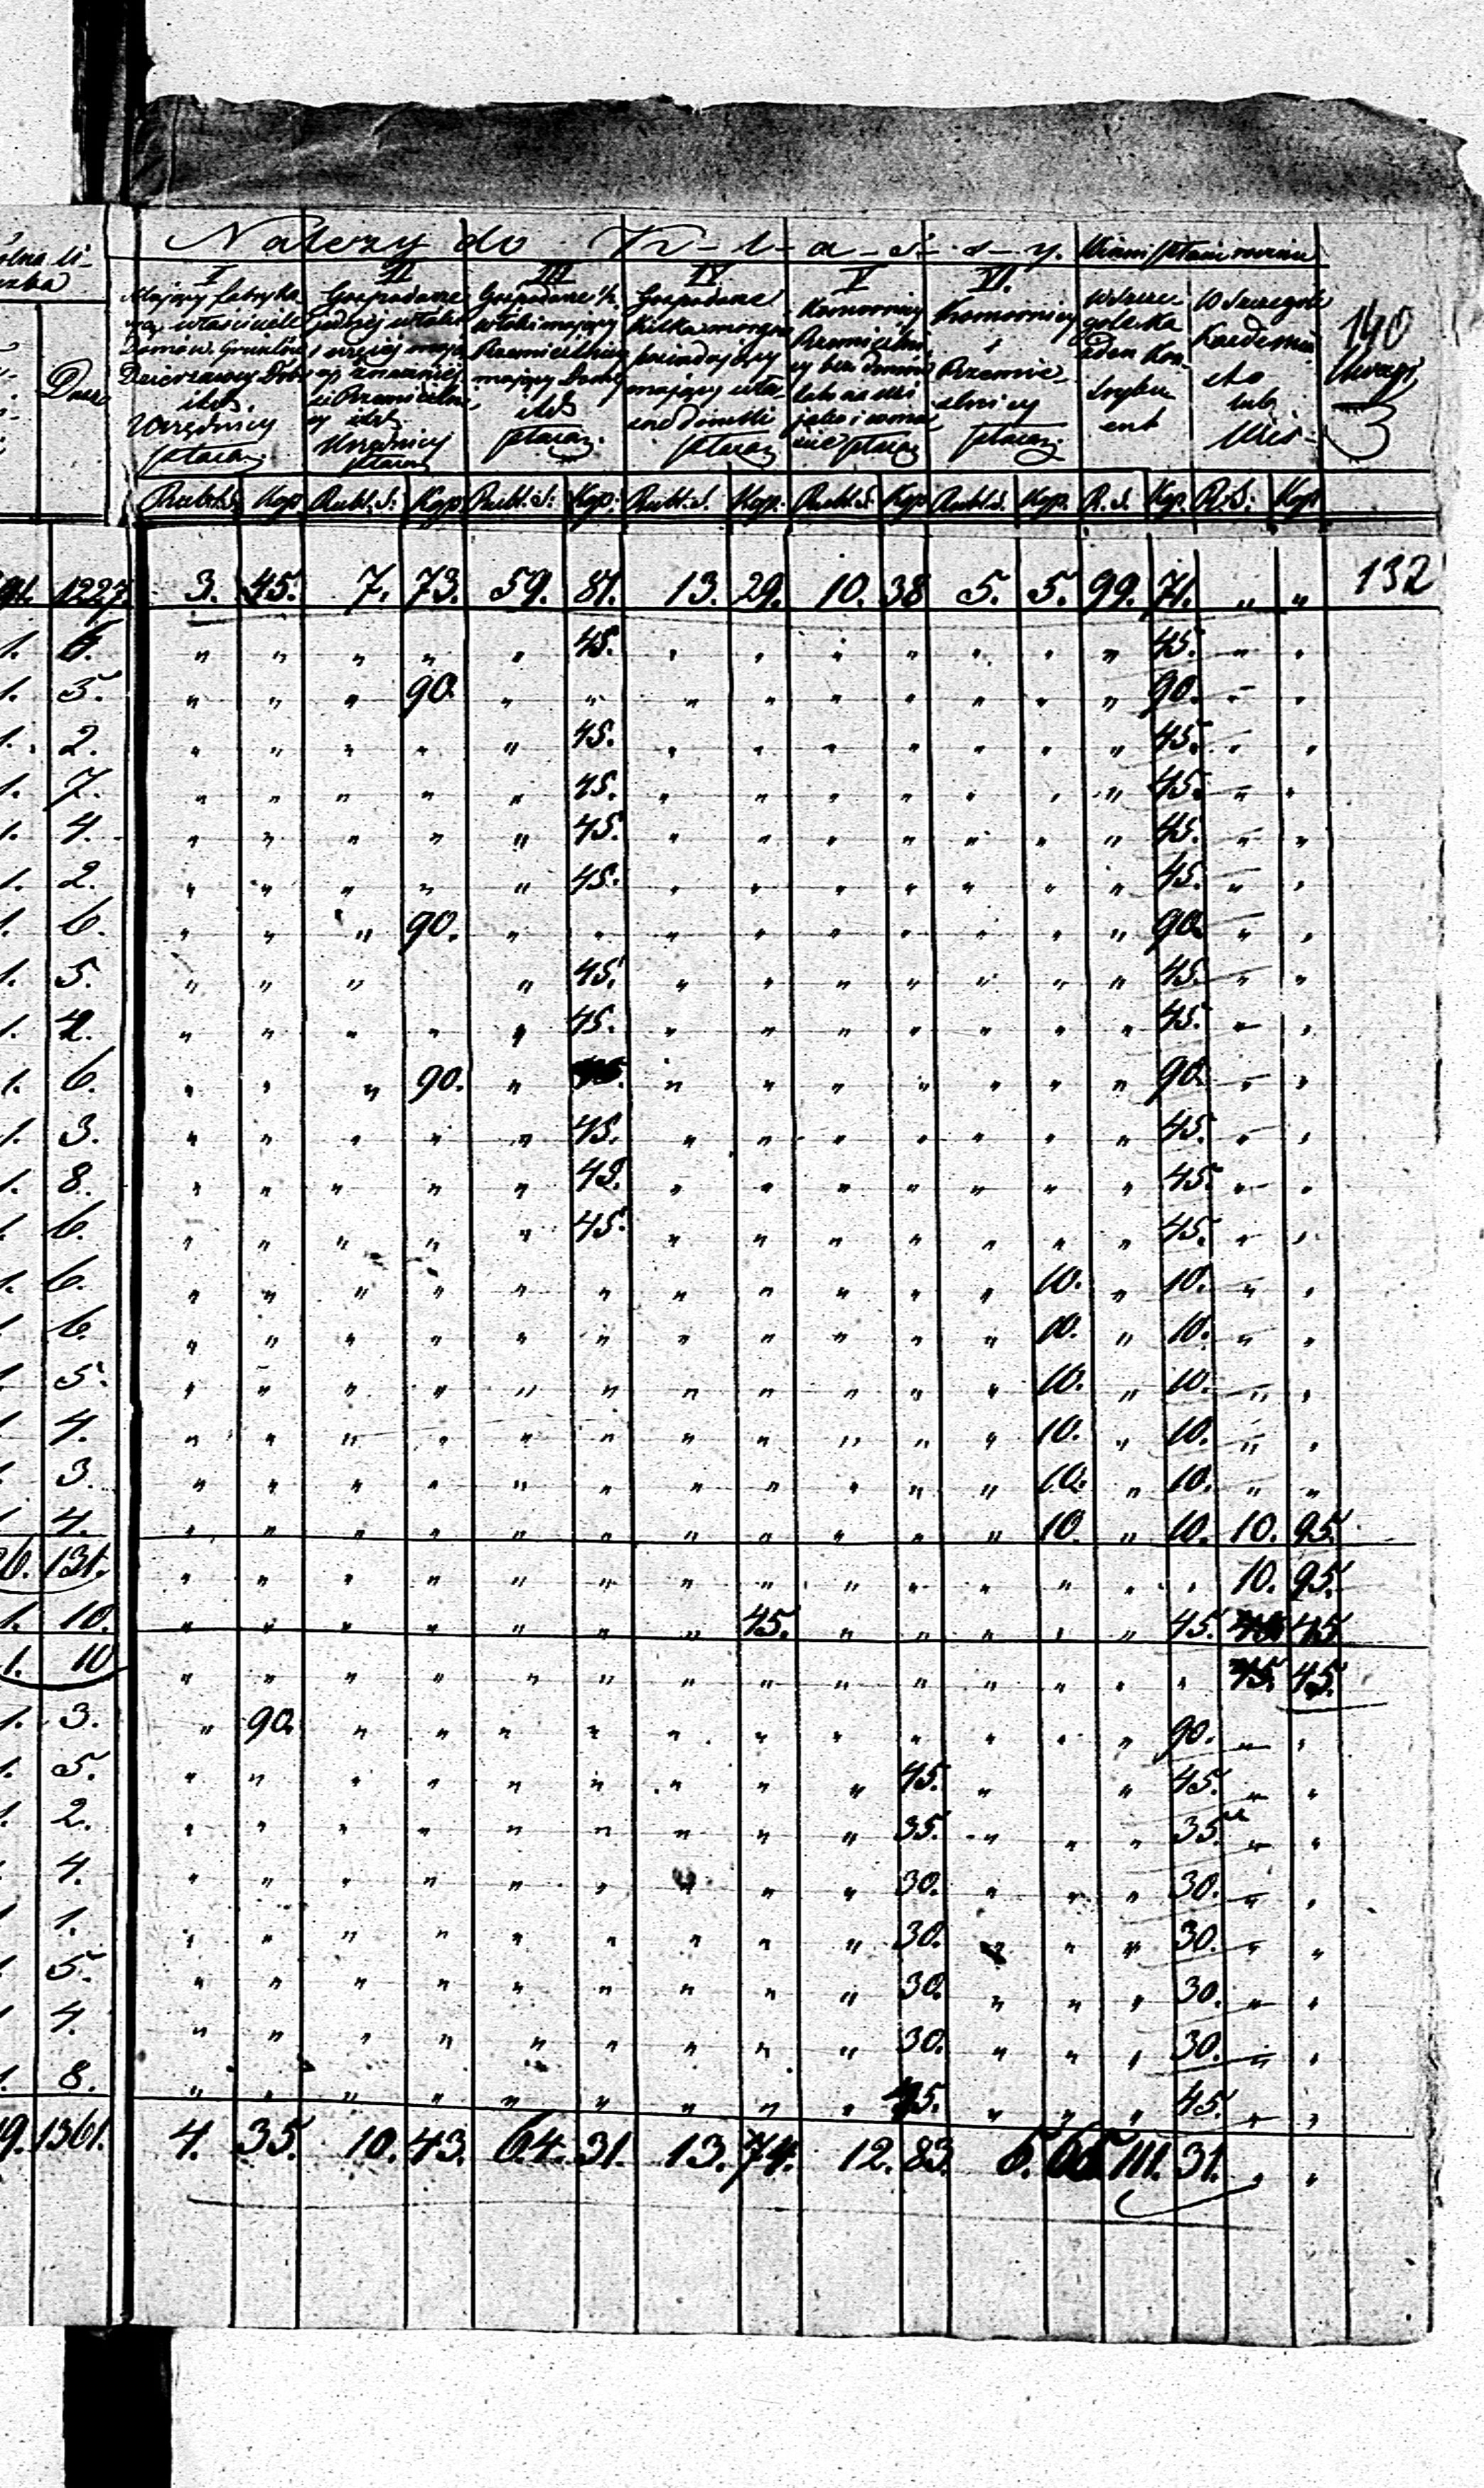 ólna li-
czba
Dusz
Należy do K-l-a-s-s-y.
Winni płacić rocznie
I
Mający fabryka
właściciele
Domów. Gruntów
Dzierżawcy Dóbr
itd.
Urzędnicy
płacą.
II
Gospodarze
jednej włóki
i więcej mają
Urzędnicy
płacą
III
Gospodarze ½
włóki mający
Rzemieślnicy
mający Domy
itd
płacą.
IV
Gospodarze
Kilka morgów
posiadający
mający wła-
sne Domki
płacą
V
Komornicy
Rzemieślni-
cy bez domów
płacą
VI.
Komornicy
i
Rzemie-
ślnicy
płacą.
Wszcze
góle ka
żden Kon
trybu
ent
W Szczególe
Każde mia
sto
lub
Wieś
140
Uwagi
Rubl.S. Kop Rubl.S. Kop Rubl.S. Kop. Rubl.S. Kop. Rubl.S. Kop Rubl.S. Kop. R.S. Kop. R.S. Kop
91. 1227. 3. 45. 7. 73. 59. 81. 13. 29. 10. 38 5. 5. 99. 71. " " 132
1. 6. " " " " " 45. " " " " " " " 45. " "
1. 5. " " " 90. " " " " " " " " " 90. " "
1. 2. " " " " " 45. " " " " " " " 45. " "
1. 7. " " " " " 45. " " " " " " " 45. " "
1. 4. " " " " " 45. " " " " " " " 45. " "
1. 2. " " " " " 45. " " " " " " " 45. " "
1. 6. " " " 90. " " " " " " " " " 90. " "
1. 5. " " " " 45. " " " " " " " 45. " "
1. 4. " " " " " 45. " " " " " " " 45. " "
1. 6. " " " 90. " " " " " " " " 90. " "
1. 3. " " " " " 45. " " " " " " " 45. " "
1. 8. " " " " " 45. " " " " " " " 45. " "
1. 6. " " " " " 45. " " " " " " " 45. " "
1. 6. " " " " " " " " " " " 10. " 10. " "
1. 6. " " " " " " " " " " " 10. " 10. " "
1. 5. " " " " " " " " " " " 10. " 10. " "
1. 4. " " " " " " " " " " " 10. " 10. " "
1. 3. " " " " " " " " " " " 10. " 10. " "
1 4. " " " " " " " " " " " 10. " 10. 10. 95.
26. 131. " " " " " " " " " " " " " " 10. 95.
1. 10. " " " " " " " 45. " " " " " 45. 45
1. 10 " " " " " " " " " " " " " " 45.
1. 3. " 90. " " " " " " " " " " " 90. " "
1. 5. " " " " " " " " " 45. " " 45. " "
1. 2. " " " " " " " " " 35. " " " 35. " "
1. 4. " " " " " " " " " 30. " " " 30. " "
1 1. " " " " " " " " " 30. " " " 30. " "
1 5. " " " " " " " " " 30. " " " 30. " "
1 4. " " " " " " " " " 30. " " " 30. " "
1. 8. " " " " " " " " " 45. " " " 45. " "
19. 1361. 4. 35. 10. 43. 64. 31. 13. 74. 12. 83. 5. 65 111. 31. " "